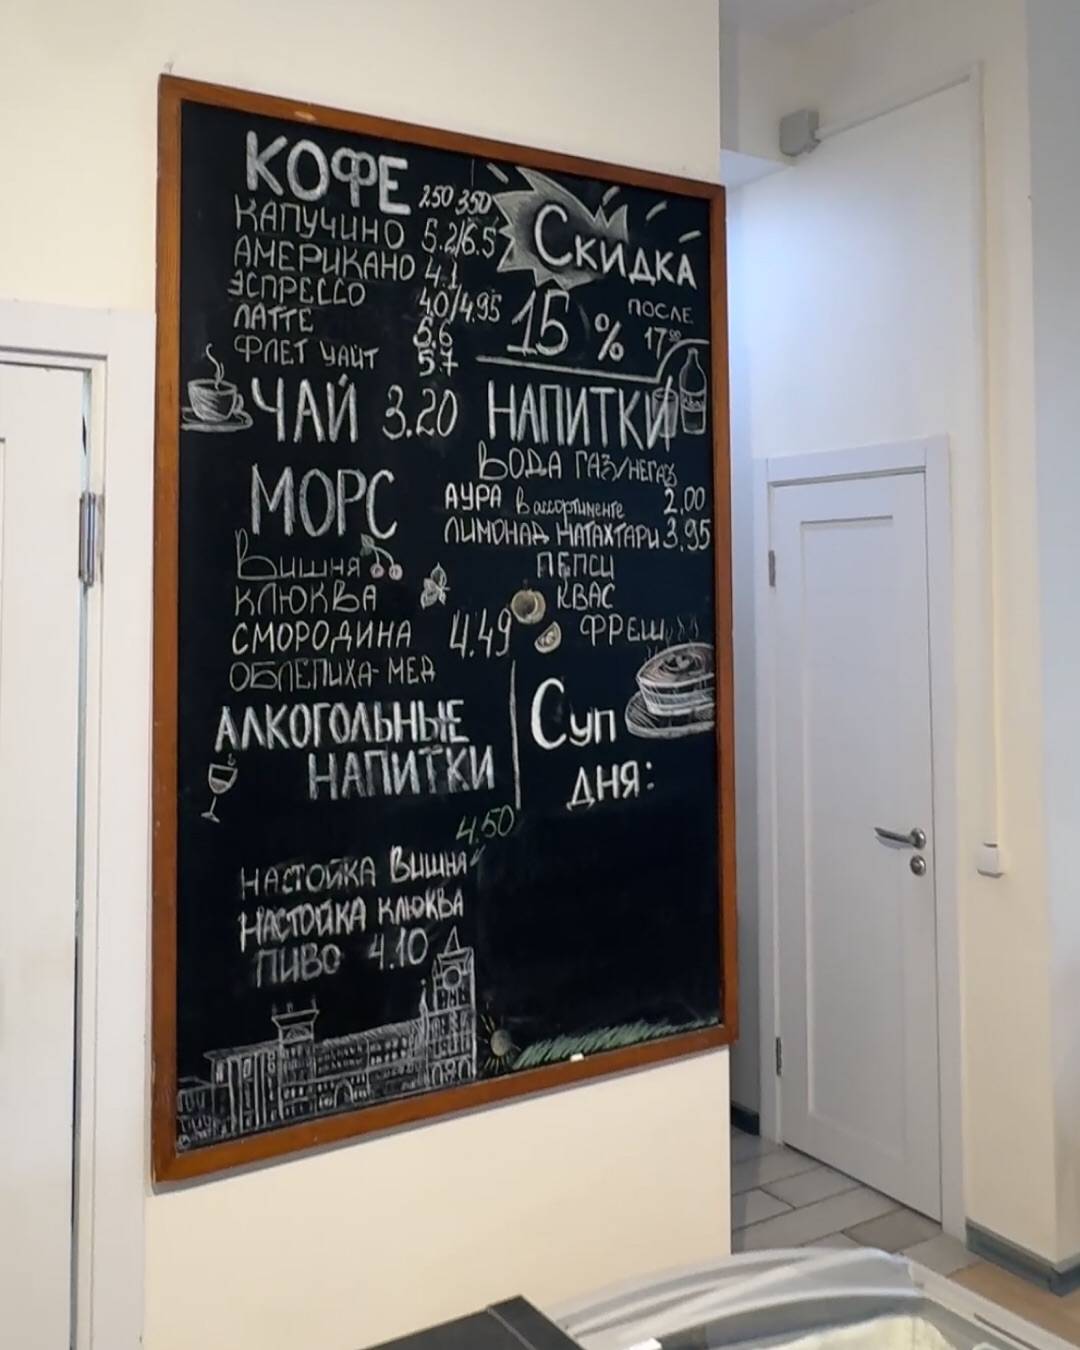 КОФЕ 250 350
КАПУЧИНО 5.2/6.5
АМЕРИКАНО 4.1
ЭСПРЕССО 4.0/4.95
ЛАТТЕ 5.6
ФЛЕТ УАЙТ 5.7
ЧАЙ 3.20
МОРС
ВИШНЯ
КЛЮКВА
СМОРОДИНА 4.49
ОБЛЕПИХА-МЕД
АЛКОГОЛЬНЫЕ
НАПИТКИ
4.50
НАСТОЙКА ВИШНЯ
НАСТОЙКА КЛЮКВА
ПИВО 4.10
СКИДКА
15 % ПОСЛЕ
17⁰⁰
НАПИТКИ
ВОДА ГАЗ/НЕГАЗ
АУРА в ассортименте 2.00
ЛИМОНАД НАТАХТАРИ 3.95
ПЕПСИ
КВАС
ФРЕШ
Суп
дня: